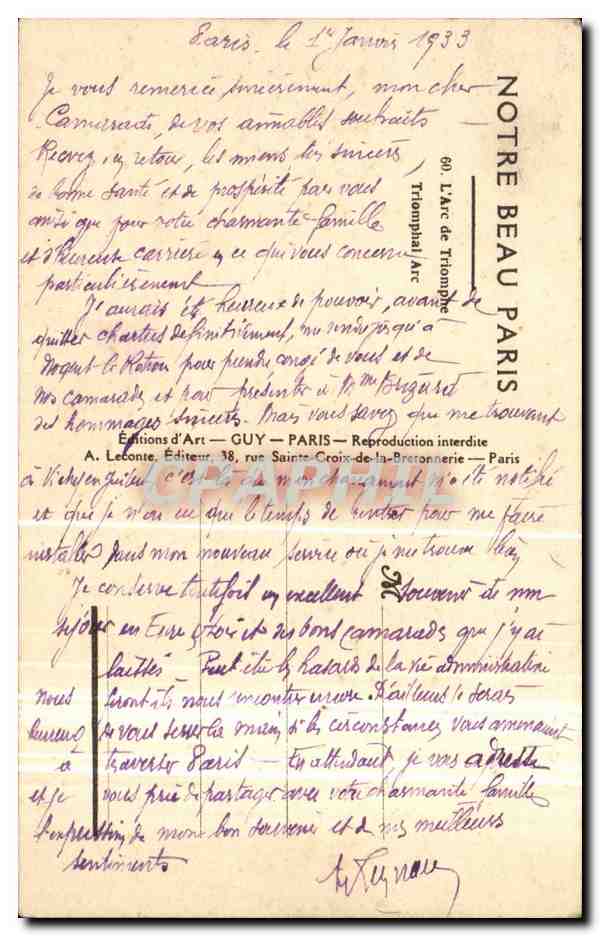 Paris, le 1er Janvier 1933
Je vous remercie, sincèrement, mon cher
Camarade, de vos aimables souhaits
Recevez, en retour, les miens très sincères,
de bonne santé et de prospérité pour vous
ainsi que pour votre charmante famille
et d'heureuse carrière en ce qui vous concerne
particulièrement
J'aurais été heureux de pouvoir, avant de
quitter Chartres définitivement, me rendre jusqu'à
Nogent-le-Rotrou pour prendre congé de vous et de
nos camarades et pour présenter à Mme
des hommages sincères. Mais vous savez que me trouvant
à Vichy en c'est là que mon changement m'a été notifié
et que je n'ai eu que le temps de rentrer pour me faire
installer dans mon nouveau service où je me trouve bien
Je conserve toutefois un excellent souvenir de mon
séjour en Eure et Loir et des bons camarades que j'y ai
laissés Peut être les hasards de la vie administrative
feront ils nous rencontrer encore. D'ailleurs je serais
heureux de vous serrer la main si les circonstances vous amenaient
à traverser Paris — En attendant je vous adresse
et je vous prie de partager avec votre charmante famille
l'expression de mon bon souvenir et de mes meilleurs
sentiments
NOTRE BEAU PARIS
60. L'Arc de Triomphe
Triomphal Arc
Éditions d'Art — GUY — PARIS — Reproduction interdite
A. Leconte, Éditeur, 38, rue Sainte-Croix-de-la-Bretonnerie — Paris
M
CPAPHIL